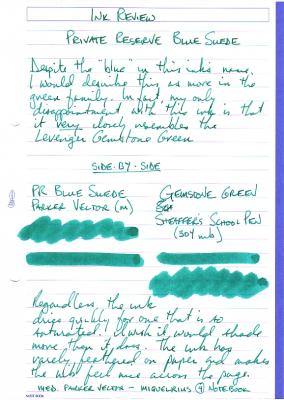 INK REVIEW
PRIVATE RESERVE BLUE SUEDE
Despite the "blue" in this ink's name,
I would describe this as more in the
green family. In fact, my only
disappointment with this ink is that
it very closely resembles the
Levenger Gemstone Green
SIDE-BY-SIDE
PR BLUE SUEDE
PARKER VECTOR (M)
GEMSTONE GREEN
SHEAFFER'S SCHOOL PEN
(304 nib)
Regardless, the ink
dries quickly for one that is so
saturated. I wish it would shade
more than it does. The ink has
rarely feathered on paper and makes
the nib feel nice across the page.
MED. PARKER VECTOR - MIQUELRIUS NOTEBOOK